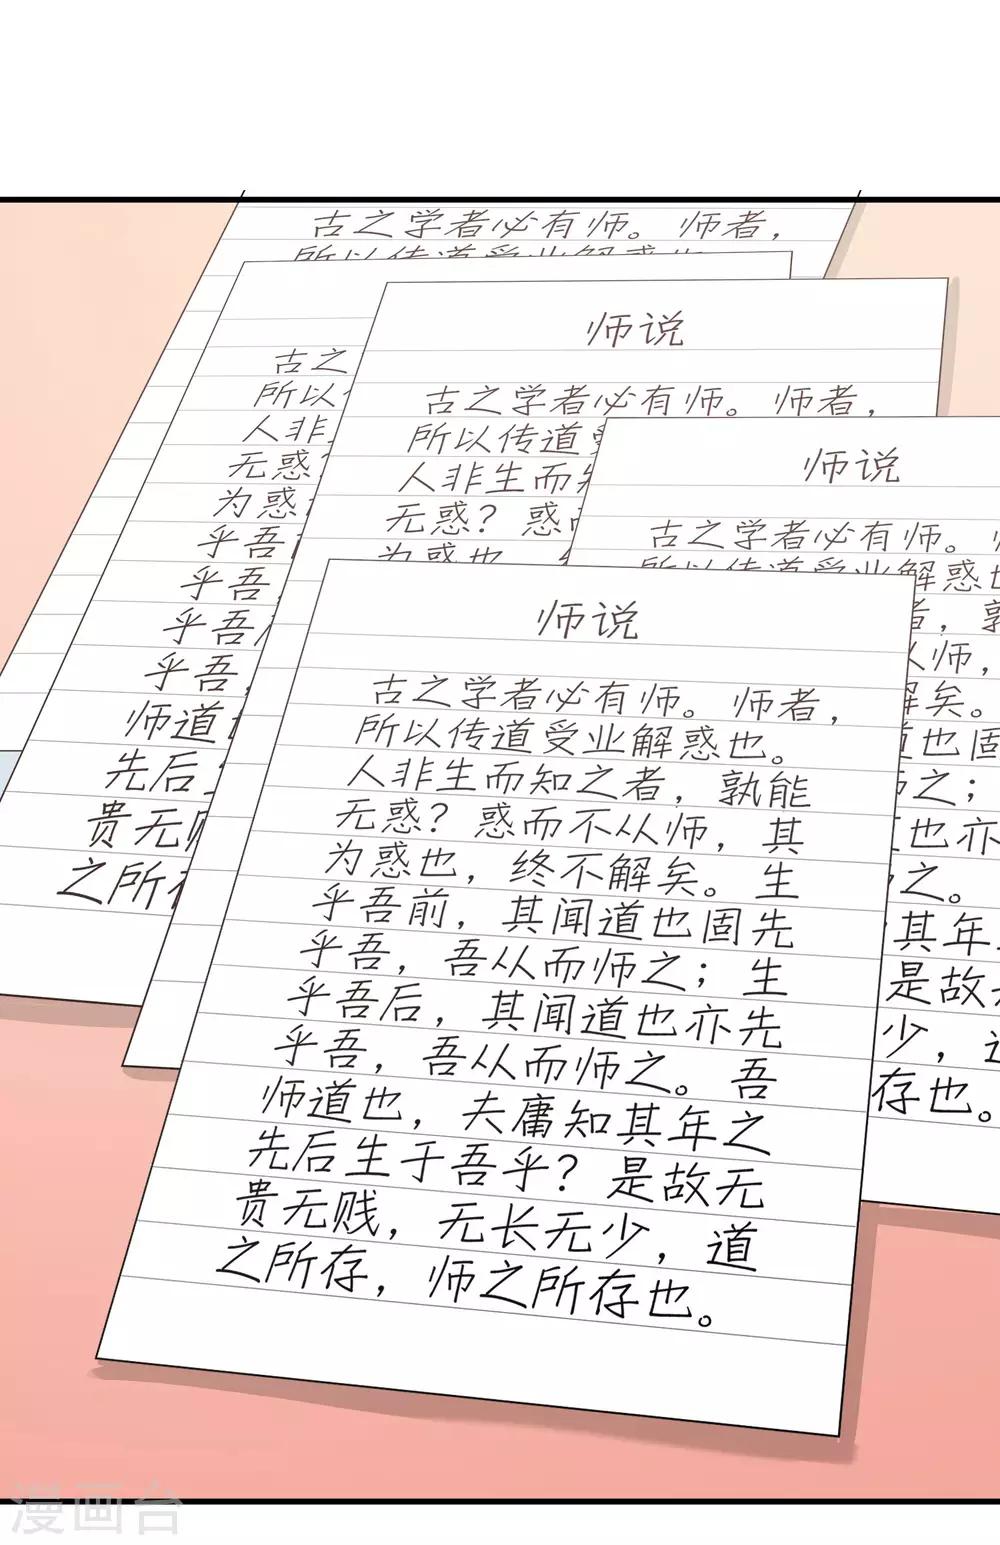 古之学者必有师。师者，
所以传道受业解惑也
古之
所以
人非
无惑
为惑
乎吾
乎吾，
乎吾
乎吾，
师道也
先后生
贵无贱
之所存
师说
古之学者必有师。师者，
所以传道受
人非生而知
无惑？惑而
为惑也，
师说
古之学者必有师。师
所以传道受业解惑也
者，孰
从师，
解矣。
道也固
师之；
道也亦
之。
其年
是故
少，道
存也。
师说
古之学者必有师。师者，
所以传道受业解惑也。
人非生而知之者，孰能
无惑？惑而不从师，其
为惑也，终不解矣。生
乎吾前，其闻道也固先
乎吾，吾从而师之；生
乎吾后，其闻道也亦先
乎吾，吾从而师之。吾
师道也，夫庸知其年之
先后生于吾乎？是故无
贵无贱，无长无少，道
之所存，师之所存也。
漫画台